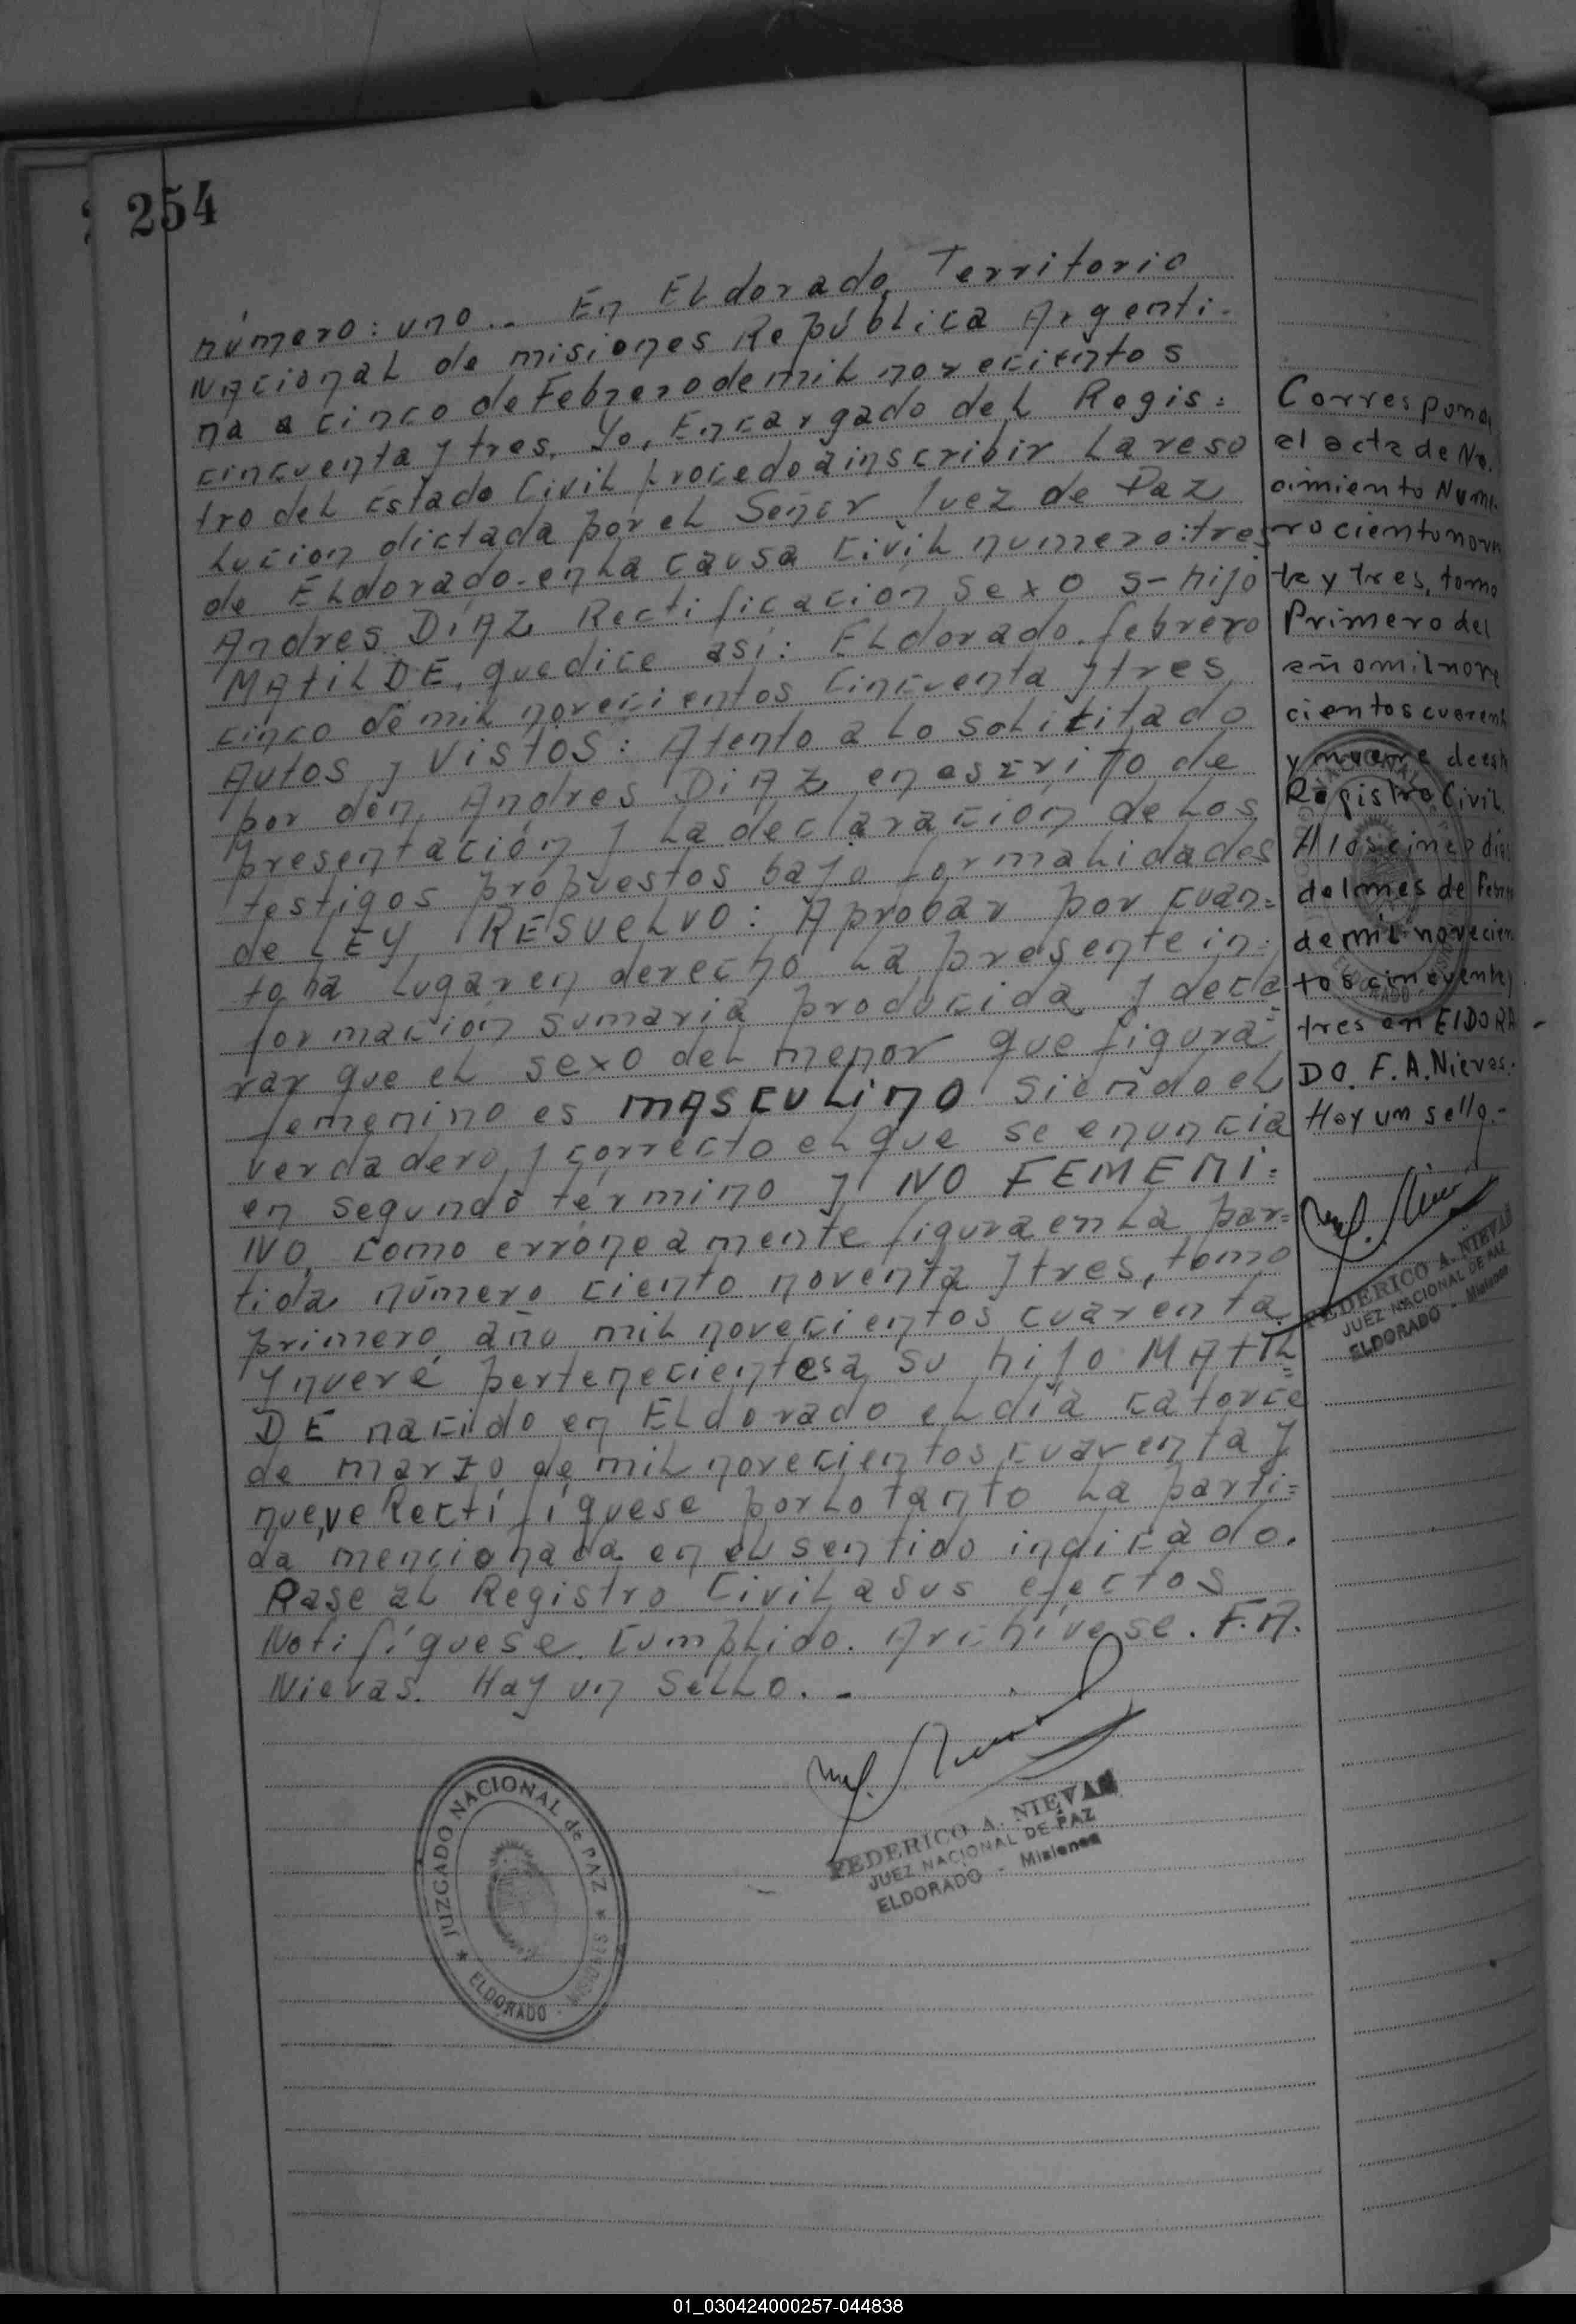 254
número: uno.- En ELdorado, Territorio
NacionaL de misiones República Argenti-
na a cinco de Febrero de miL novecientos
cincuenta y tres. Yo, Encargado deL Regis=
tro deL Estado CiviL procedo a inscribir La reso
Lucion dictada por eL Señor Juez de Paz
de ELdorado. en La causa CiviL numero: tres
Andres DiAZ Rectificación sexo s-hijo
MAtiLDE, que dice asi: ELdorado. febrero
cinco de miL novecientos Cincuenta y tres
Autos y VistoS: Atento a Lo soLicitado
por don Andres DiAZ en escrito de
presentación y La decLaración de Los
testigos propuestos bajo formaLidades
de LEY, RESUELVO: Aprobar por cuan=
to ha Lugar en derecho La presente in=
formación sumaria producida y decla
rar que eL sexo deL menor que figura
femenino es mASCULiNO siendo eL
verdadero y correcto eL que se enuncia
en segundo término y NO FEMENI=
NO, como erróneamente figura en La par=
tida número ciento noventa y tres, tomo
primero año miL novecientos cuarenta
y nueve perteneciente a su hijo MAtiL=
DE nacido en ELdorado eL día catorce
de marzo de miL novecientos cuarenta y
nueve Rectifíquese por Lo tanto La parti=
da mencionada en eL sentido indicado.
Pase aL Registro CiviL a sus efectos
Notifíquese. CumpLido. Archívese. F.A.
Nievas. Hay un SeLLo.-
JUZGADO NACIONAL de PAZ * ELDORADO - MISIONES *
FEDERICO A. NIEVAS
JUEZ NACIONAL DE PAZ
ELDORADO - Misiones
Correspon
al acta de Na.
cimiento Nume.
ro ciento noven
ta y tres, tomo
Primero del
año mil nove
cientos cuarent
y nueve de est
Registro Civil.
A los cinco días
del mes de Febre
de mil novecien
tos cincuenta y
tres en ElDORA-
DO. F. A. Nievas.-
Hay un sello.-
FEDERICO A. NIEVAS
JUEZ NACIONAL DE PAZ
ELDORADO - Misiones
01_030424000257-044838